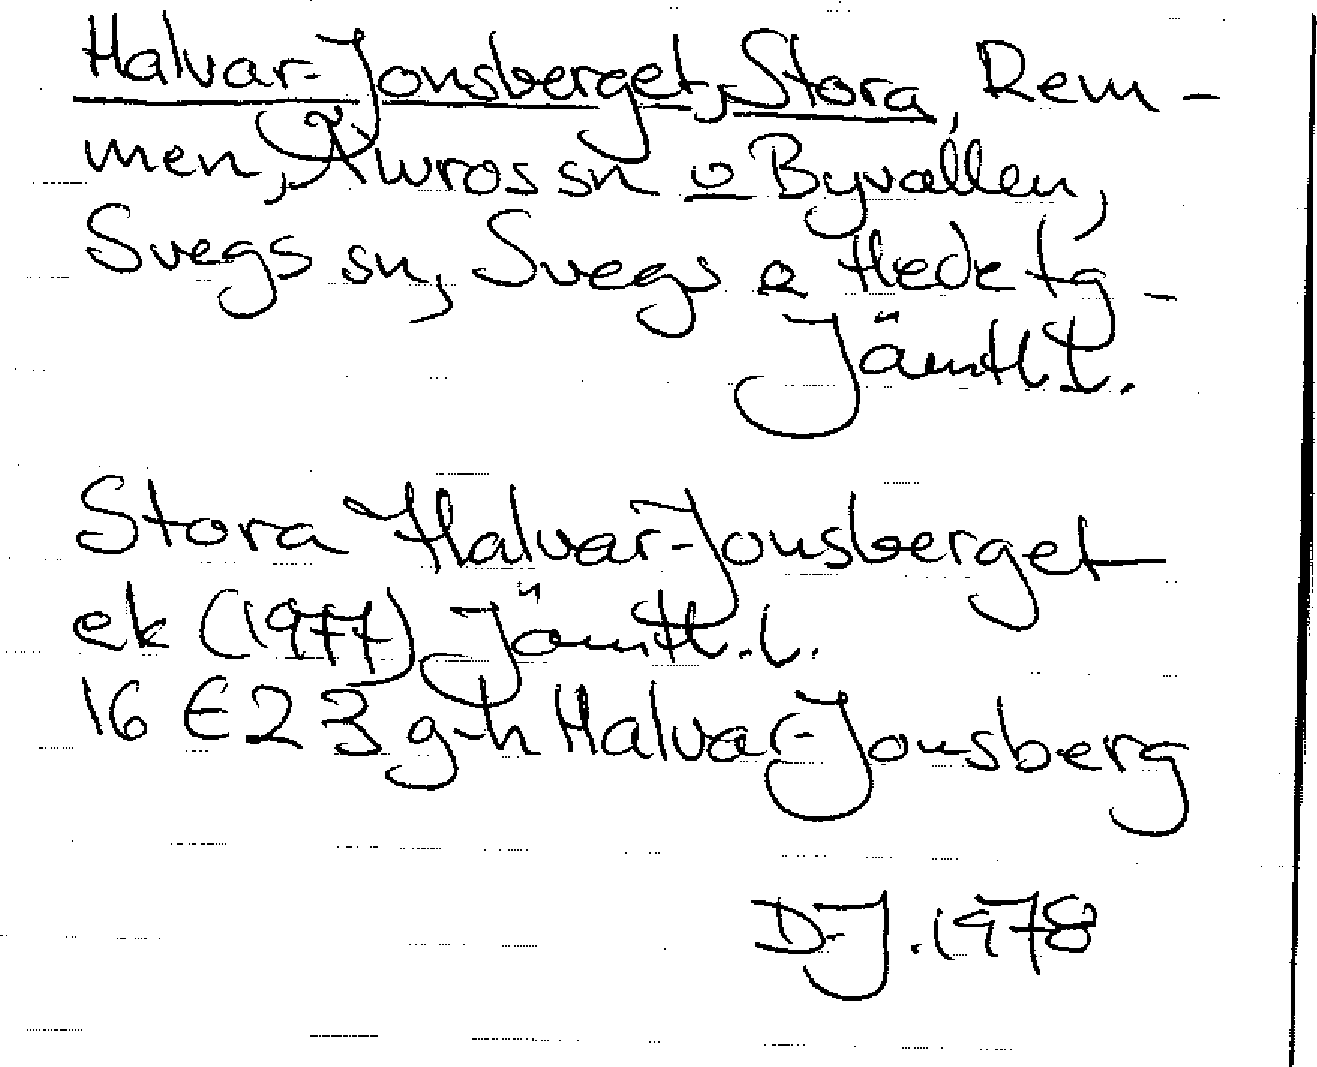 Halvar-Jonsberget, Stora, Rem-
men, Älvros sn o Byvallen,
Svegs sn, Svegs o Hede tg -
Jämtl l.
Stora Halvar-Jonsberget
ek (1977) Jämtl. l.
16 E 23 g-h Halvar-Jonsberg
D-J. 1978